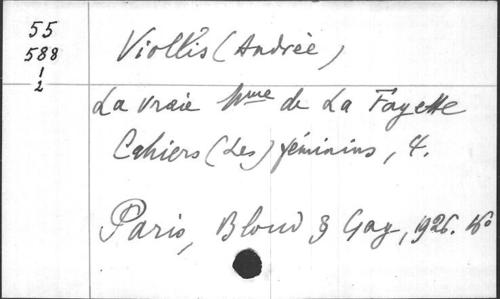 55
588
1
2
Viollis (Andrée)
La vraie Mme de La Fayette
Cahiers (Les) féminins, 4.
Paris, Bloud & Gay, 1926. 16º